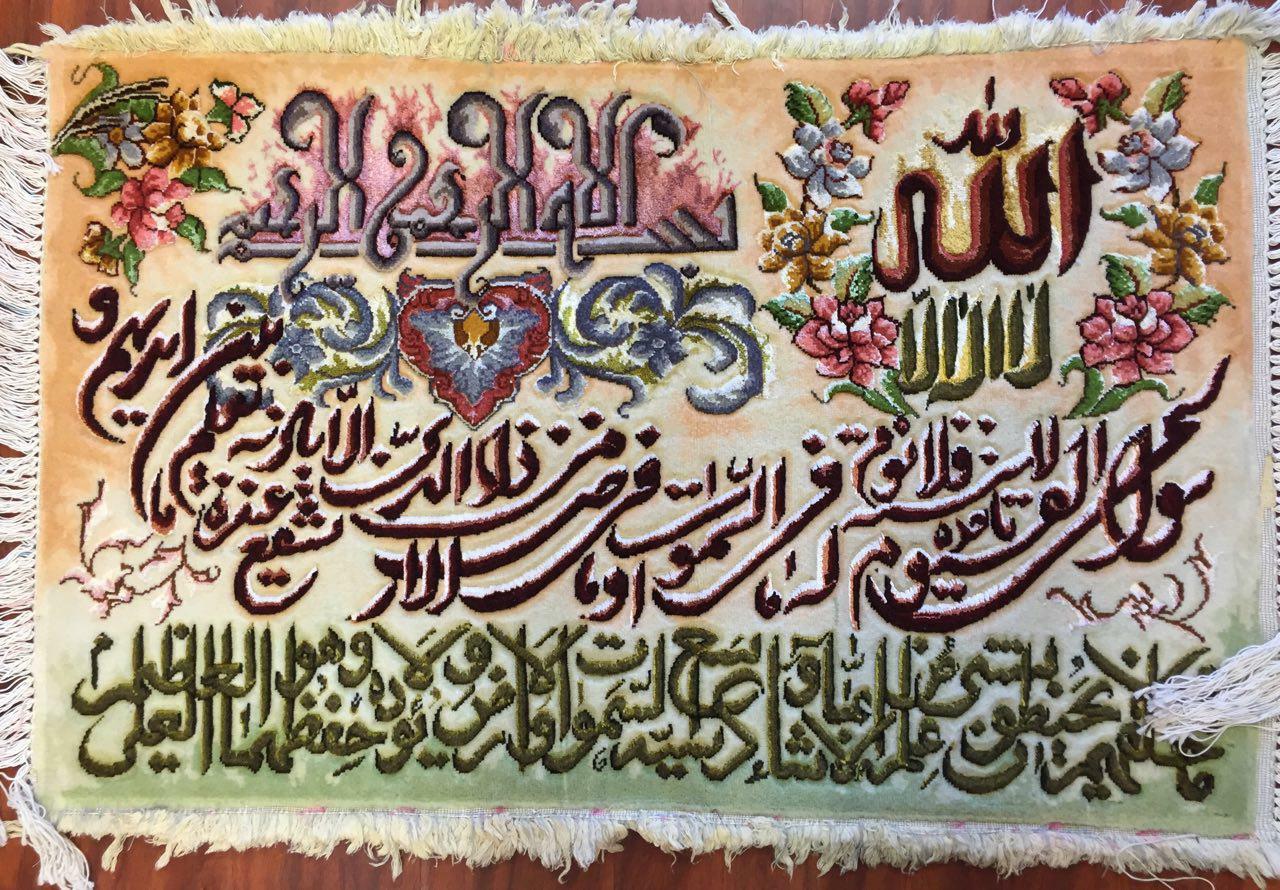 بسم الله الرحمن الرحیم
الله
لا اله الا
هو الحی القیوم لا تاخذه سنة و لا نوم له ما فی السموات و ما فی الارض من ذا الذی یشفع عنده الا باذنه یعلم ما بین ایدیهم و
ما خلفهم و لا یحیطون بشیء من علمه الا بما شاء وسع کرسیه السموات و الارض و لا یوده حفظهما و هو العلی العظیم